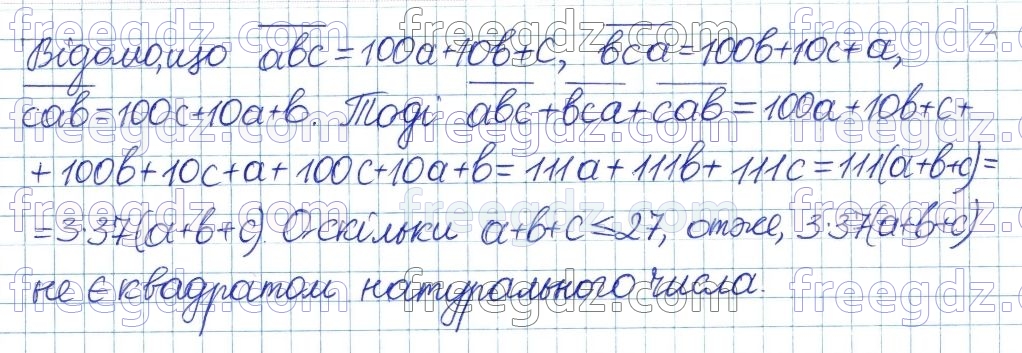 Відомо, що abc̅ = 100a+10b+c, bca̅ = 100b+10c+a,
cab̅ = 100c+10a+b. Тоді abc̅ + bca̅ + cab̅ = 100a+10b+c+
+ 100b+10c+a+100c+10a+b = 111a+111b+111c = 111(a+b+c) =
= 3·37(a+b+c). Оскільки a+b+c ≤ 27, отже, 3·37(a+b+c)
не є квадратом натурального числа.
freegdz.com